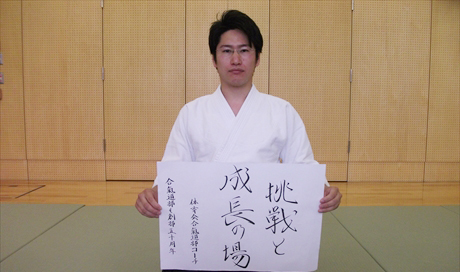 挑戦と
成長の場
体育会合氣道部コーチ
合氣道部も創部五十周年